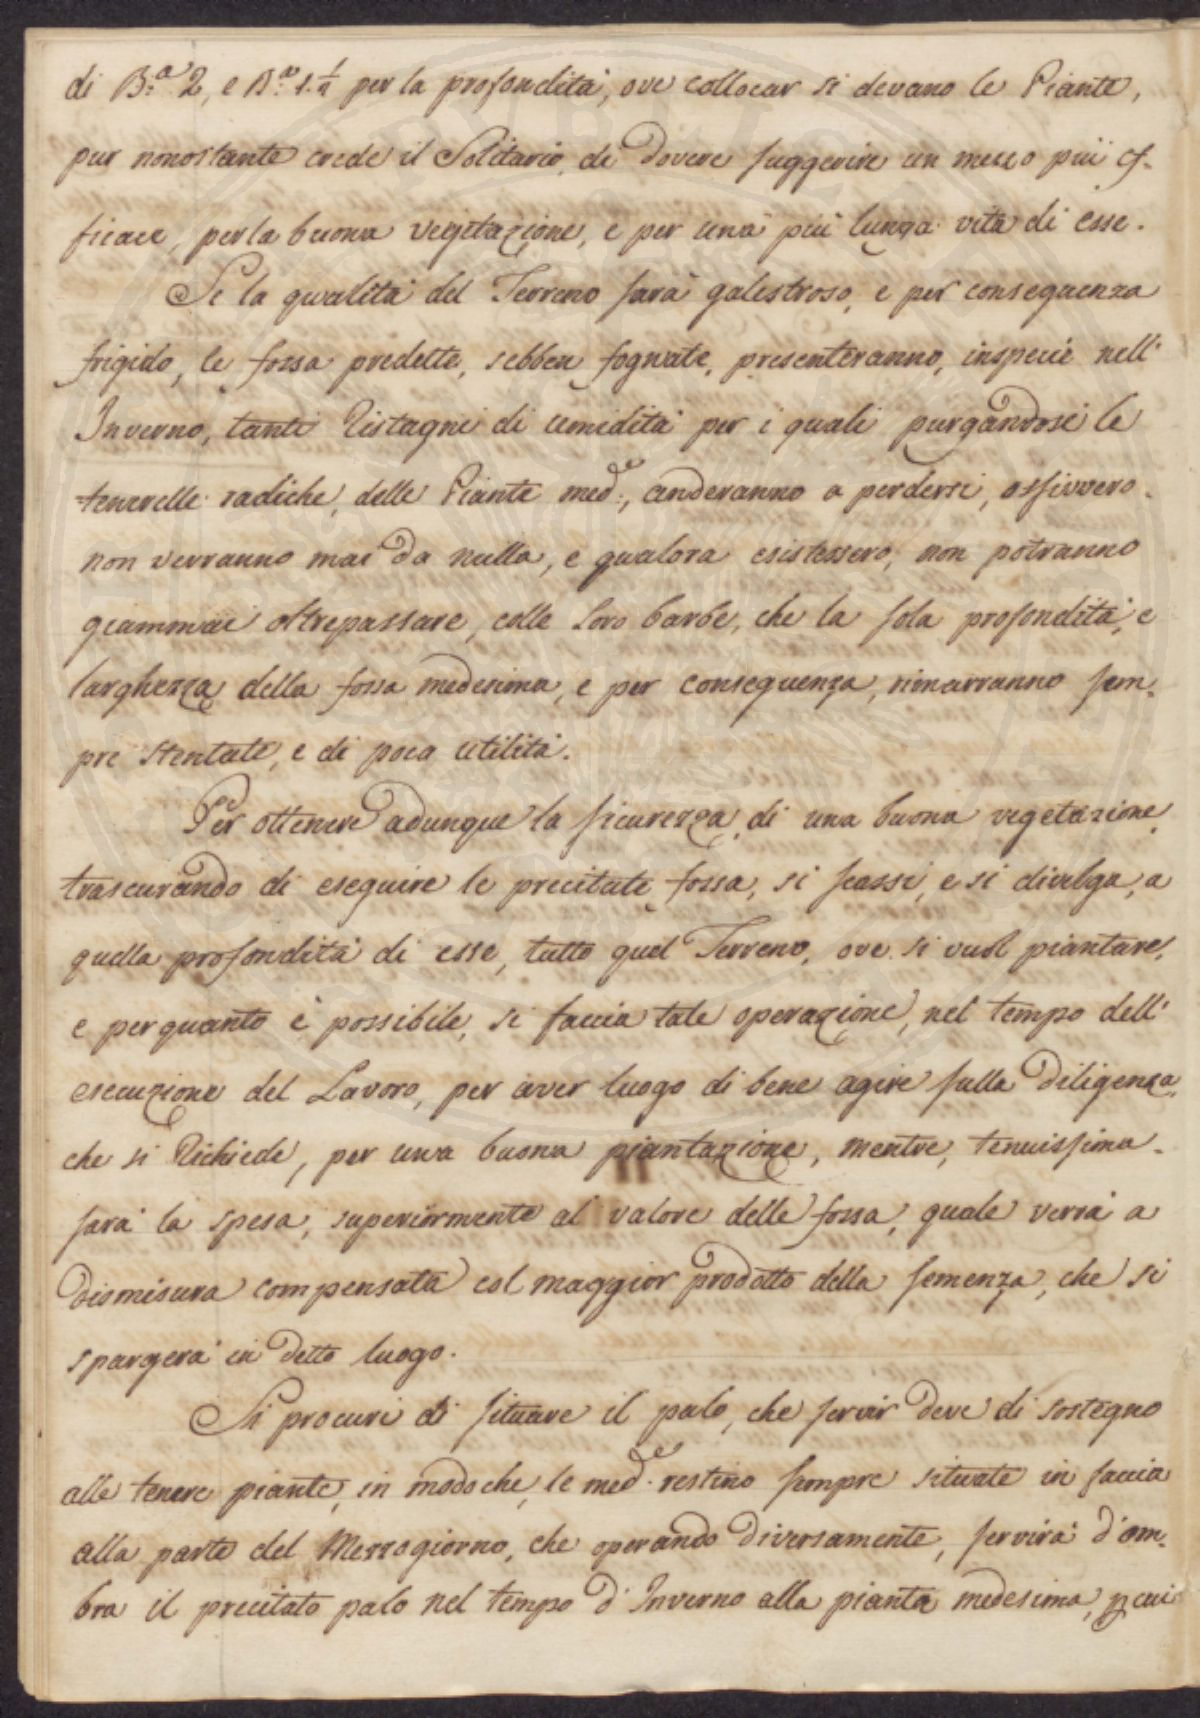 di B.a 2, e B.a 1.½ per la profondità, ove collocar si devano le Piante,
pur nonostante crede il Solitario, di dovere suggerire un mezzo più ef-
ficace, per la buona vegetazione, e per una più lunga vita di esse.
Se la qualità del Terreno sarà galestroso, e per conseguenza
frigido, le fossa predette, sebben fognate, presenteranno, inspecie nell'
Inverno, tanti Ristagni di umidità per i quali purgandosi le
tenerelle radiche, delle Piante med.e, anderanno a perdersi, ossivvero
non verranno mai da nulla, e qualora esistessero, non potranno
giammai oltrepassare, colle loro barbe, che la sola profondità, e
larghezza della fossa medesima, e per conseguenza, rimarranno sem-
pre stentate, e di poca utilità.
Per ottenere adunque la sicurezza di una buona vegetazione,
trascurando di eseguire le precitate fossa, si scassi, e si divelga, a
quella profondità di esse, tutto quel Terreno, ove si vuol piantare,
e per quanto è possibile, si faccia tale operazione, nel tempo dell'
esecuzione del Lavoro, per aver luogo di bene agire sulla diligenza,
che si Richiede, per una buona piantazione, mentre, tenuissima
sarà la spesa, superiormente al valore delle fossa, quale verrà a
dismisura compensata col maggior prodotto della semenza, che si
spargerà in detto luogo.
Si procuri di situare il palo, che servir deve di sostegno
alle tenere piante, in modo che, le med.e restino sempre situate in faccia
alla parte del Mezzogiorno, che operando diversamente, servirà d'om-
bra il precitato palo nel tempo d'Inverno alla pianta medesima, p cui